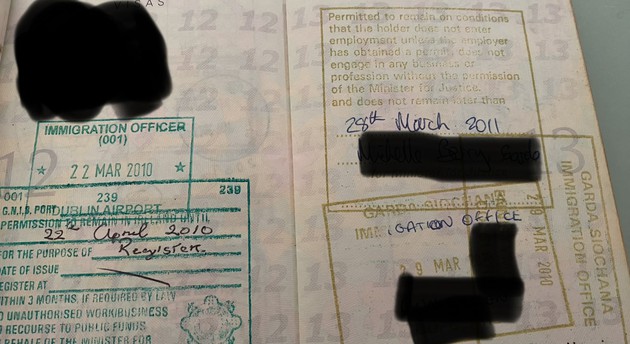 VISAS
IMMIGRATION OFFICER
(001)
22 MAR 2010
DUBLIN AIRPORT
001 239 239
G.N.I.B. PORT
PERMISSION TO REMAIN IN IRELAND UNTIL
22nd April 2010
FOR THE PURPOSE OF Register
DATE OF ISSUE
REGISTER AT
WITHIN 3 MONTHS, IF REQUIRED BY LAW
NO UNAUTHORISED WORK/BUSINESS
NO RECOURSE TO PUBLIC FUNDS
BEHALF OF THE MINISTER FOR
12
13
Permitted to remain on conditions
that the holder does not enter
employment unless the employer
has obtained a permit, does not
engage in any business or
profession without the permission
of the Minister for Justice.
and does not remain later than
28th March 2011
GARDA SIOCHANA
IMMIGRATION OFFICE
29 MAR
GARDA SIOCHANA
IMMIGRATION OFFICE
29 MAR 2010